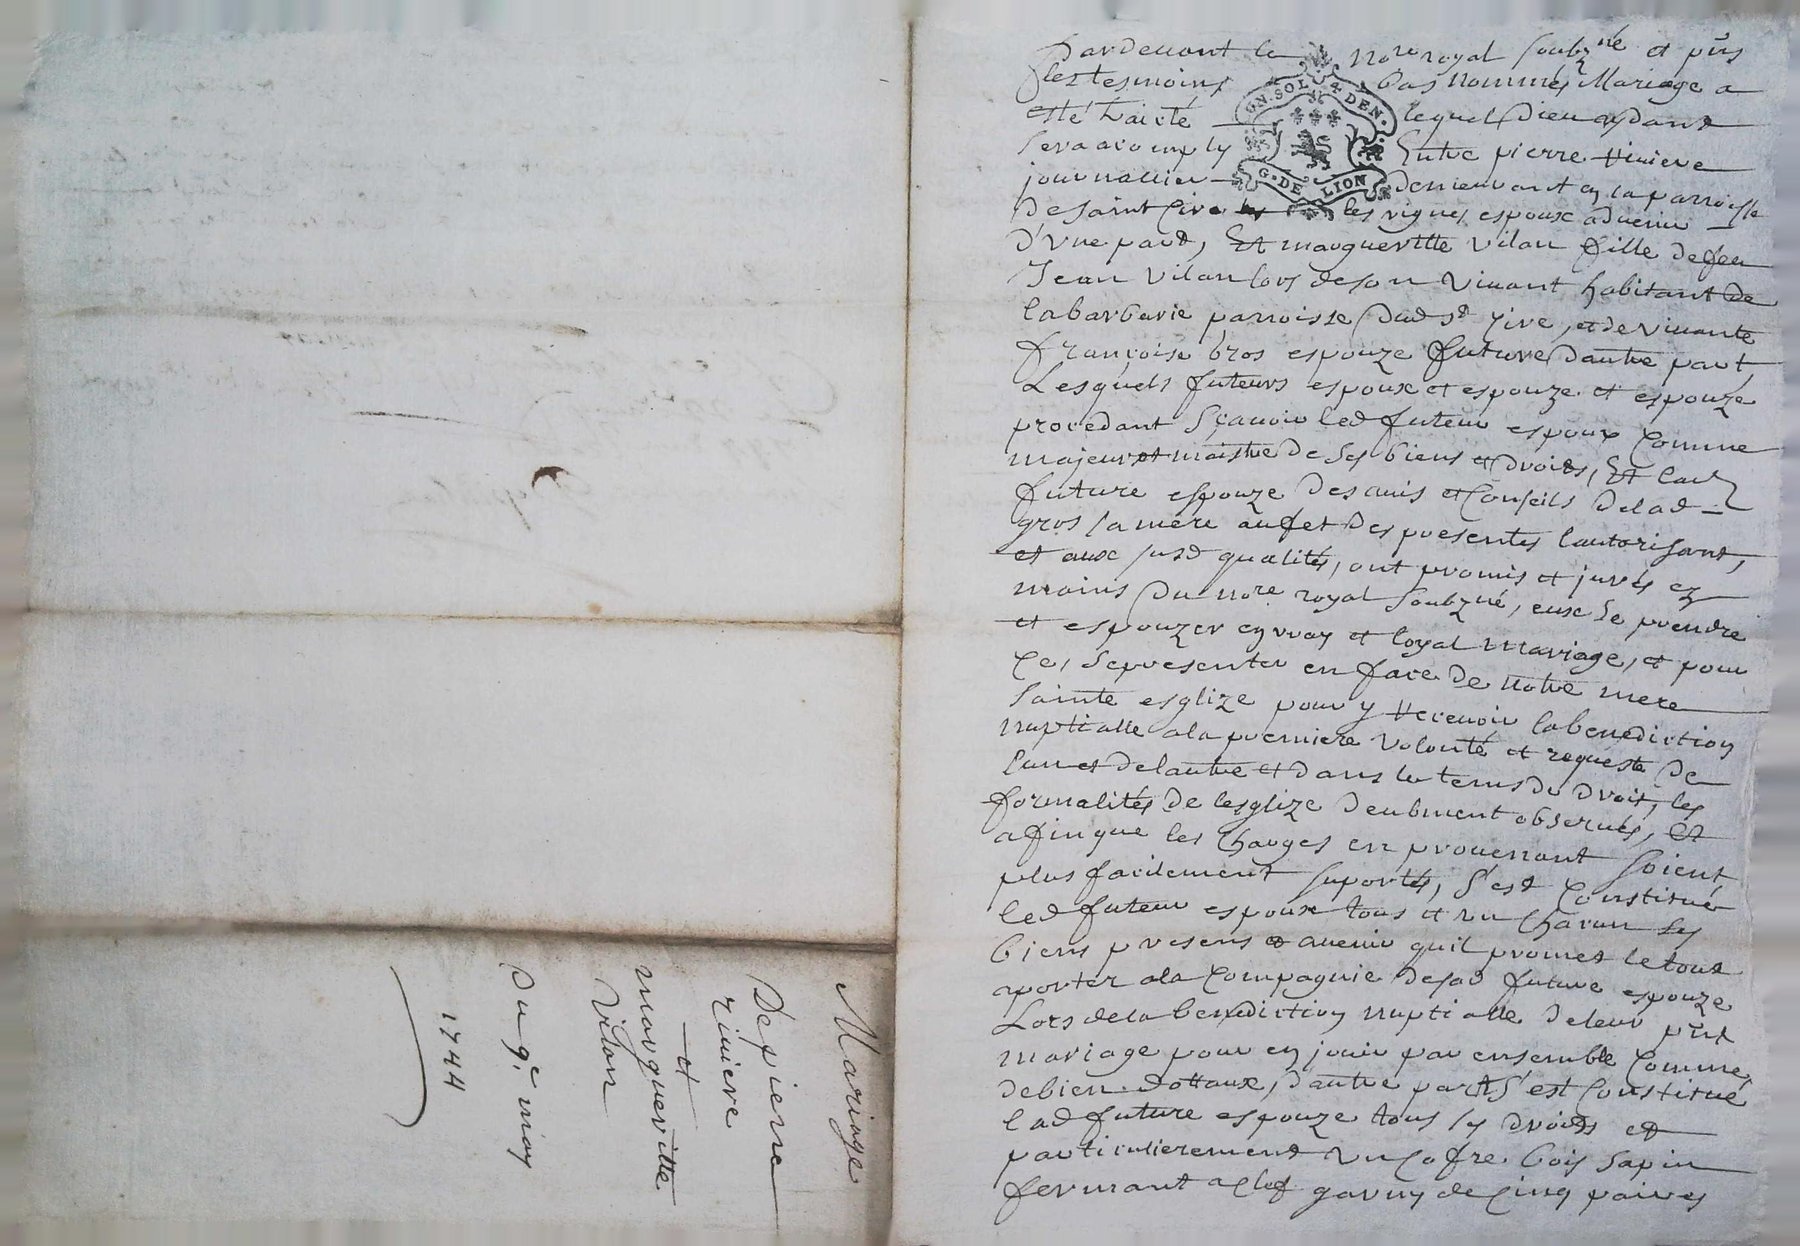 Pardevant le nore royal soubzné et pñs
les tesmoins bas nommés Mariage a
esté traicté lequel Dieu aydant
sera acomply Entre pierre riviere
journallier demeurant en la parroisse
de saint Cire les vignes espoux advenir
d'vne part, Et margueritte vilan fille de feu
Jean vilan lors de son vivant habitant de
la barbarie parroisse dud st Cire, et de vivante
françoise gros espouze future d'autre part
Lesquels futeurs espoux et espouze et espouze
procedant sçavoir led futeur espoux comme
majeur et maistre de ses biens et droits, Et lad
future espouze des avis et conseils de lad
gros sa mere au fet des presentes l'autorisant,
et aux susd qualités, ont promis et jurés ez
mains du nore royal soubzné, eux se prendre
et espouzer en vray et loyal mariage, et pour
ce, se presenter en face de notre mere
sainte esglize pour y recevoir la benediction
nuptialle a la premiere volonté et requeste de
lun et de lautre et dans le tems du droit, les
formalités de lesglize deubment observés, Et
afin que les charges en provenant soient
plus facilement suportés, s'est constitué
led futeur espoux tous et vn chacun ses
biens presens et avenir quil promet le tout
aporter a la compagnie de sad future espouze
Lors de la benediction nuptialle de leur pñt
mariage pour en jouir par ensemble comme
de bien dottaux, d'autre part s'est constitué
lad future espouze tous ses droits et
particulierement vn cofre bois sapin
fermant a clef garny de cinq paires
Mariage
De pierre
riviere
et
margueritte
vilan
Du 9e may
1744
UN. SOL. 4. DEN.
G. DE LION